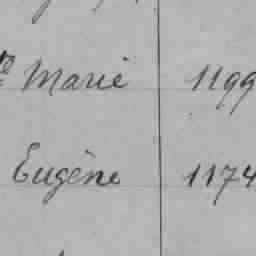 Marie 1199
Eugène 1174